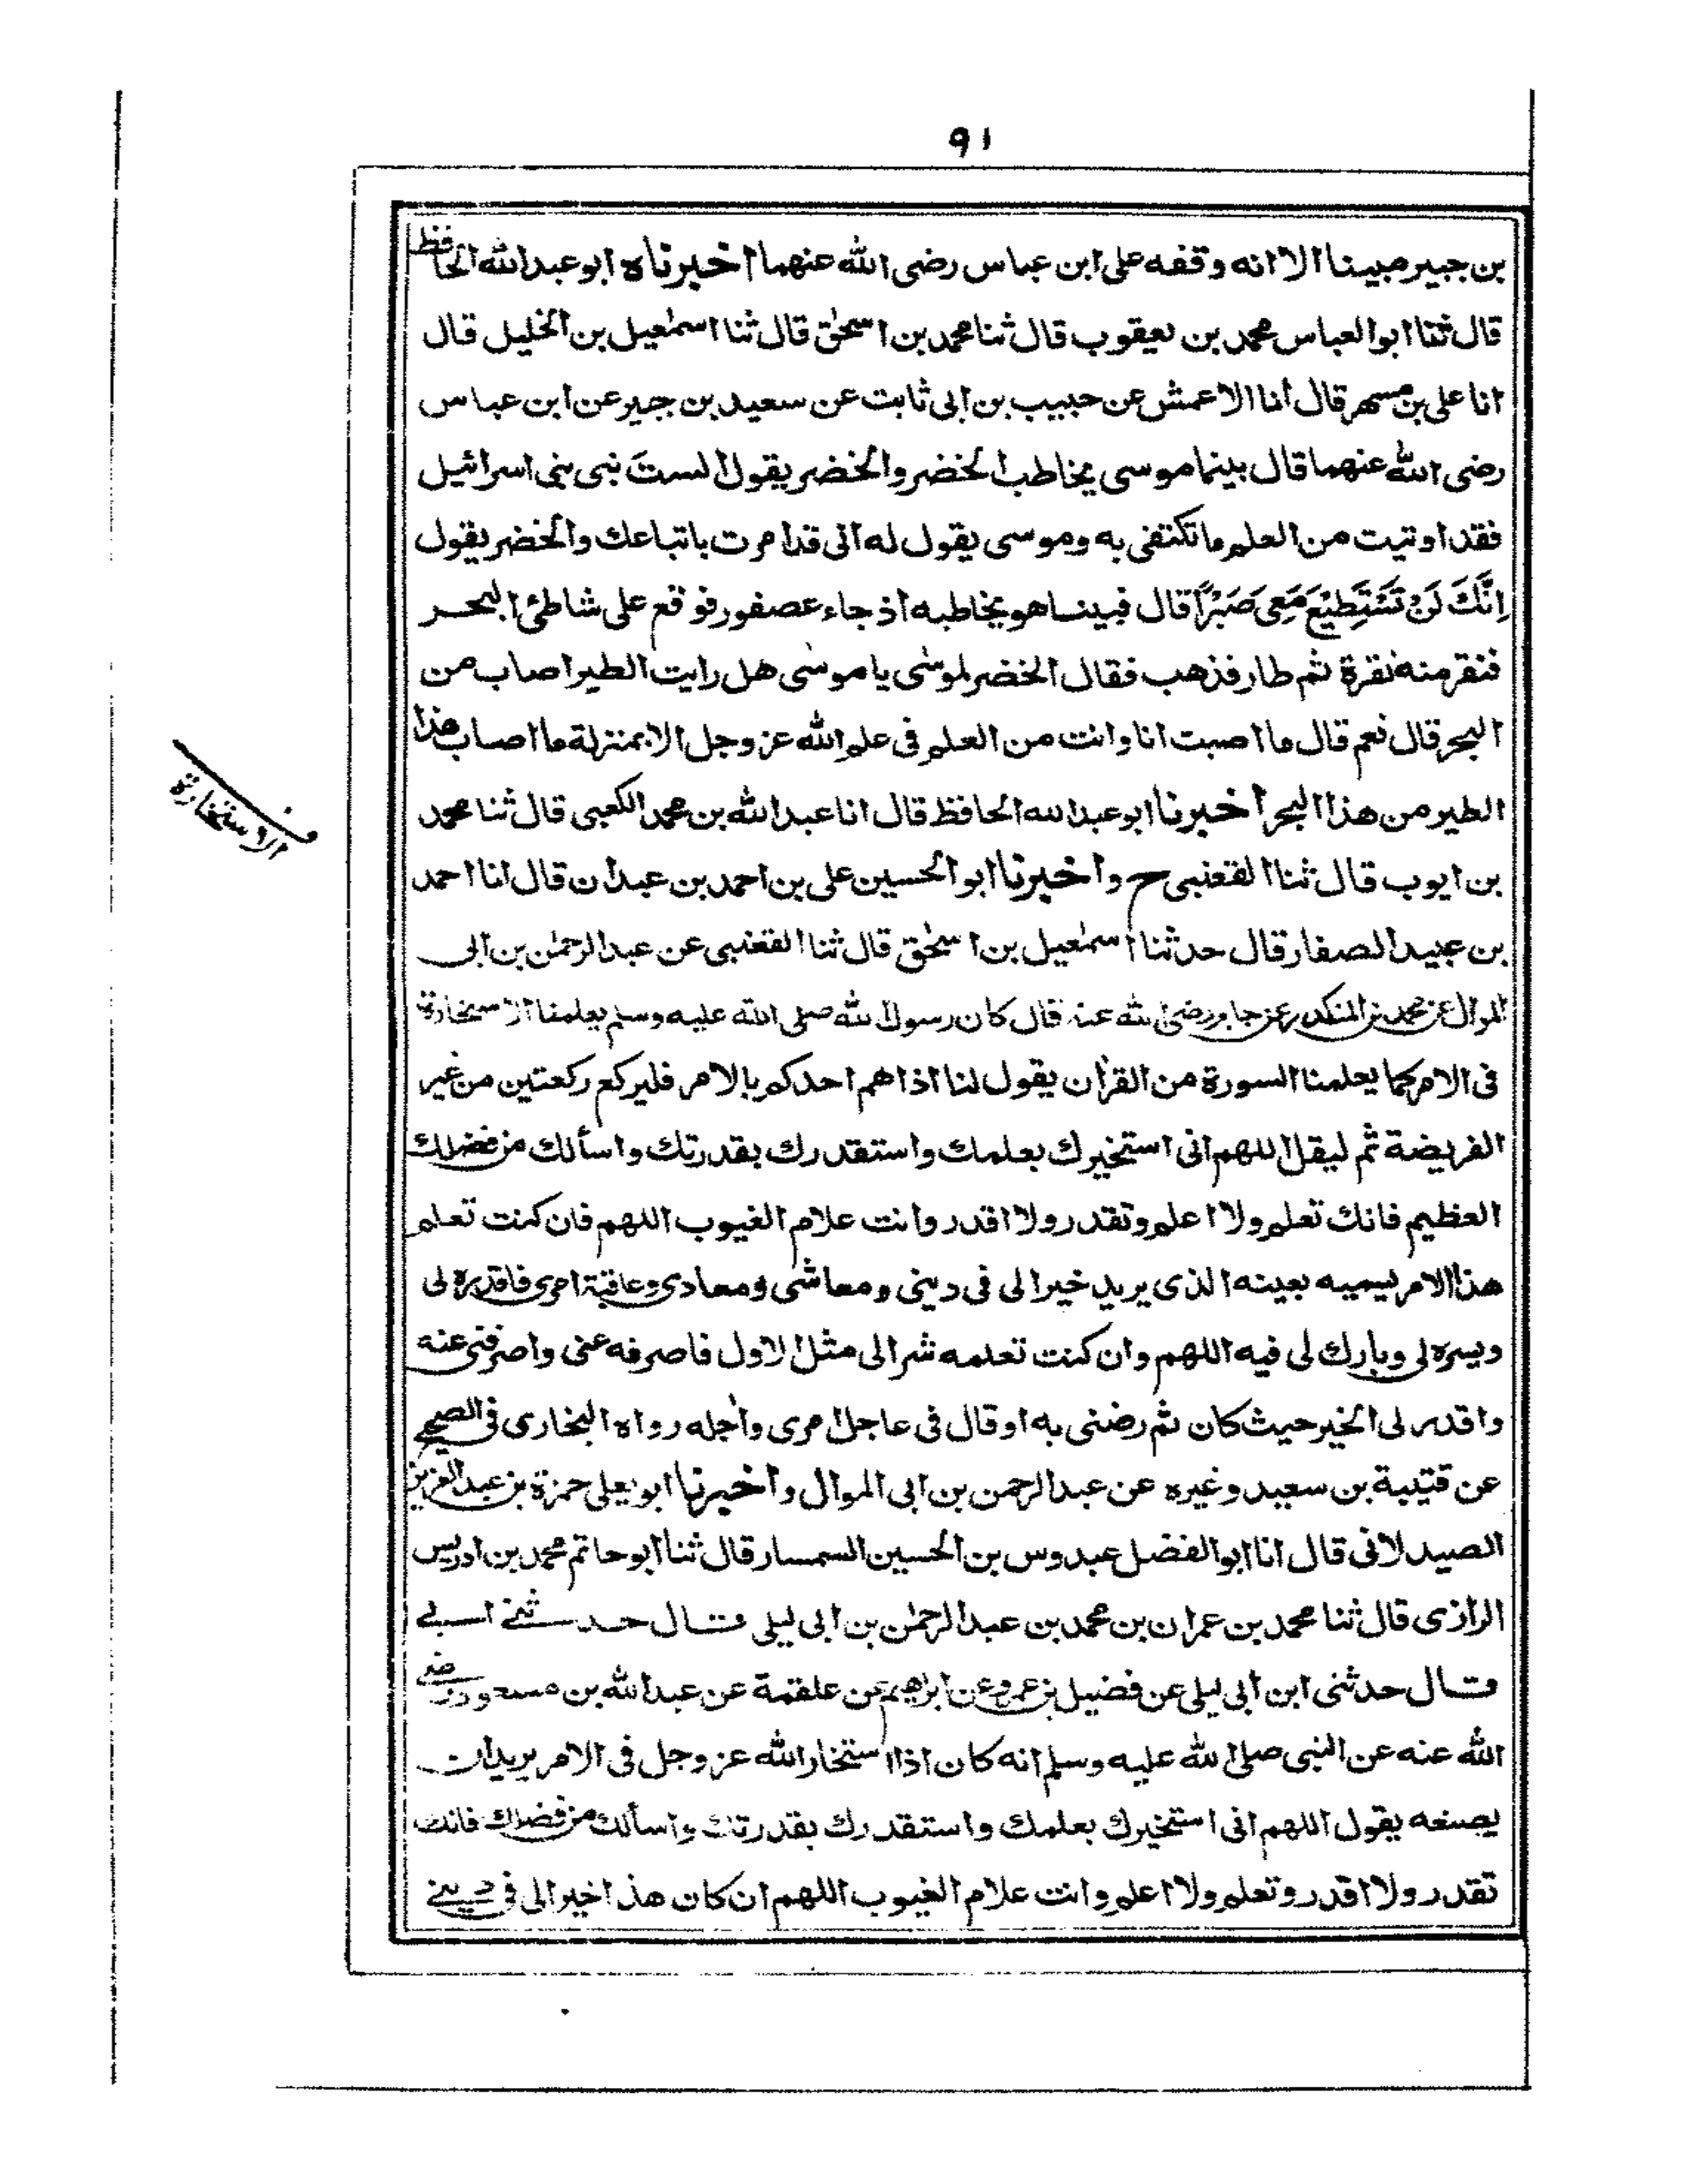 ٩١
بن جبير مبينا الا انه وقفه على ابن عباس رضى الله عنهما اخبرناه ابو عبدالله الحافظ
قال ثنا ابوالعباس محمد بن يعقوب قال ثنا محمد بن اسحٰق قال ثنا اسمٰعيل بن الخليل قال
انا على بن مسهر قال انا الاعمش عن حبيب بن ابى ثابت عن سعيد بن جبير عن ابن عباس
رضى الله عنهما قال بينما موسى يخاطب الخضر والخضر يقول الستَ نبى بنى اسرائيل
فقد اوتيت من العلم ما تكتفى به وموسى يقول له انى قد امرت باتباعك والخضر يقول
اِنَّكَ لَنْ تَسْتَطِيْعَ مَعِىَ صَبْرًا قال فبينا هو يخاطبه اذ جاء عصفور فوقع على شاطئ البحر
فنقر منه نقرة ثم طار فذهب فقال الخضر لموسٰى يا موسٰى هل رايت الطير اصاب من
البحر قال نعم قال ما اصبت انا وانت من العلم فى علم الله عز وجل الا بمنزلة ما اصاب هذا
الطير من هذا البحر اخبرنا ابو عبدالله الحافظ قال انا عبدالله بن محمد الكعبى قال ثنا محمد
بن ايوب قال ثنا القعنبى ح واخبرنا ابوالحسين على بن احمد بن عبدان قال انا احمد
بن عبيد الصفار قال حدثنا اسمٰعيل بن اسحٰق قال ثنا القعنبى عن عبدالرحمٰن بن ابى
الموال عن محمد بن المنكدر عن جابر رضى الله عنه قال كان رسول الله صلى الله عليه وسلم يعلمنا الاستخارة
فى الامر كما يعلمنا السورة من القرٰان يقول لنا اذا هم احدكم بالامر فليركع ركعتين من غير
الفريضة ثم ليقل اللهم انى استخيرك بعلمك واستقدرك بقدرتك واسألك من فضلك
العظيم فانك تعلم ولا اعلم وتقدر ولا اقدر وانت علام الغيوب اللهم فان كنت تعلم
هذا الامر يسميه بعينه الذى يريد خيرا لى فى دينى ومعاشى ومعادى وعاقبة امرى فاقدره لى
ويسره لى وبارك لى فيه اللهم وان كنت تعلمه شرا لى مثل الاول فاصرفه عنى واصرفنى عنه
واقدر لى الخير حيث كان ثم رضنى به او قال فى عاجل امرى واٰجله رواه البخارى فى الصحيح
عن قتيبة بن سعيد وغيره عن عبدالرحمن بن ابى الموال واخبرنا ابو يعلى حمزة بن عبدالعزيز
الصيدلانى قال انا ابوالفضل عبدوس بن الحسين السمسار قال ثنا ابوحاتم محمد بن ادريس
الرازى قال ثنا محمد بن عمران بن محمد بن عبدالرحمٰن بن ابى ليلى قال حدثنى ابى
قال حدثنى ابن ابى ليلى عن فضيل بن عمرو عن ابرٰهيم عن علقمة عن عبدالله بن مسعود رضى
الله عنه عن النبى صلى الله عليه وسلم انه كان اذا استخار الله عز وجل فى الامر يريد ان
يصنعه يقول اللهم انى استخيرك بعلمك واستقدرك بقدرتك واسألك من فضلك فانك
تقدر ولا اقدر وتعلم ولا اعلم وانت علام الغيوب اللهم ان كان هذا خيرا لى فى دينى
الاستخارة